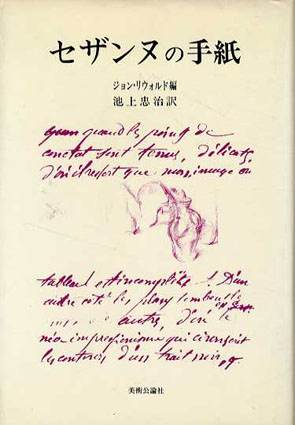 セザンヌの手紙
ジョン・リウォルド編
池上忠治訳
quand les points de
contact sont tenus, délicats,
d'où il ressort que mon image ou
tableau est incomplète ! D'un
autre côté les plans tombent
autres, d'où le
néo-impressionnisme qui circonscrit
les contours d'un trait noir,
美術公論社